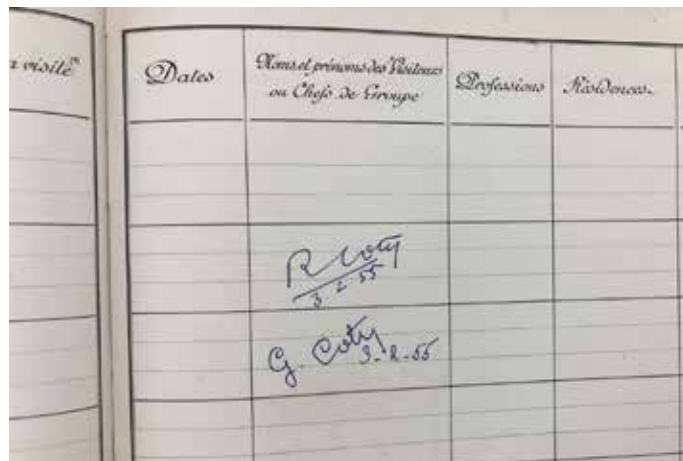 a visité
Dates
Noms et prénoms des Visiteurs
ou Chefs de Groupe
Professions
Résidences
R Coty
3 2 55
G. Coty 3-2-55